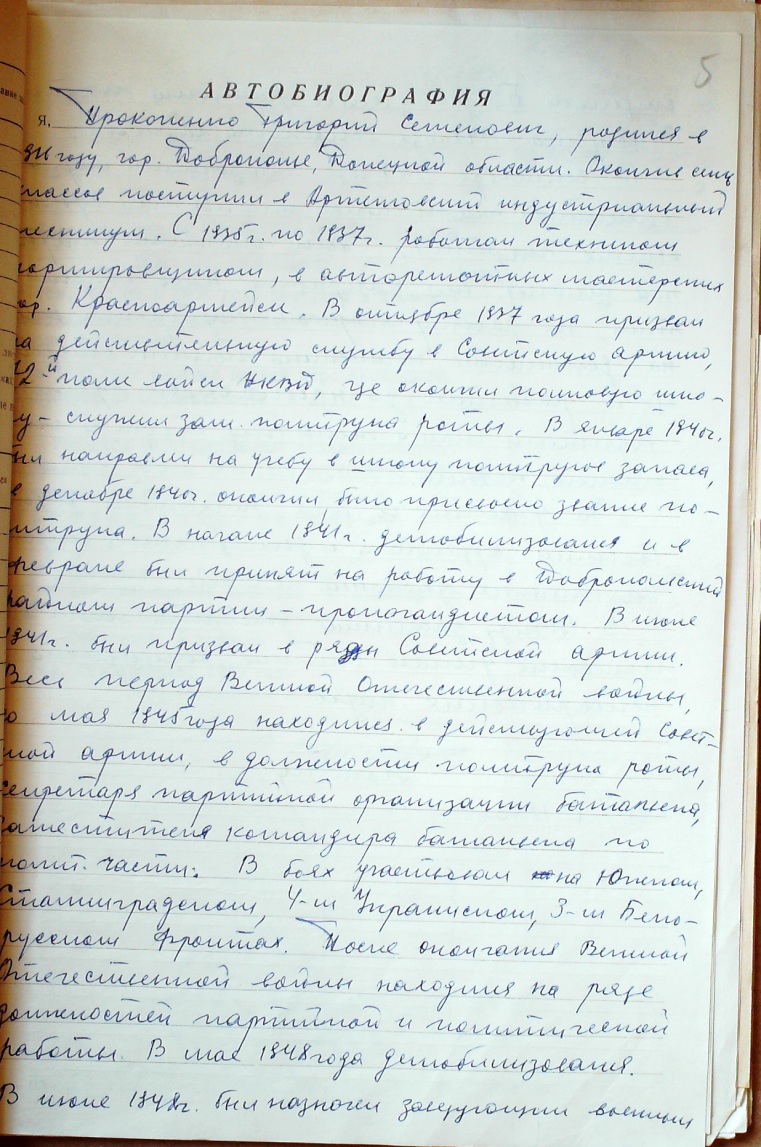 5
АВТОБИОГРАФИЯ
Я. Прокопенко Григорий Семенович, родился в
году, гор. Доброполье, Донецкой области. Окончив семь
классов поступил в Артемовский индустриальный
техникум. С 1935г. по 1937г. работал техником
, в авторемонтных мастерских
гор. Красноармейск. В октябре 1937 года призван
на действительную службу в Советскую армию,
полк войск НКВД, где окончил полковую шко-
лу – служил зам. политрука роты. В январе 1940г.
был направлен на учебу в школу политруков запаса,
в декабре 1940г. окончил, было присвоено звание по-
литрука. В начале 1941г. демобилизовался и в
феврале был принят на работу в Добропольский
райком партии – пропагандистом. В июне
1941г. был призван в ряды Советской армии.
Весь период Великой Отечественной войны,
до мая 1945 года находился в действующей Совет-
ской армии, в должности политрука роты,
секретаря партийной организации батальона,
заместителя командира батальона по
полит. части. В боях участвовал на Южном,
Сталинградском, 4-м Украинском, 3-м Бело-
русском фронтах. После окончания Великой
Отечественной войны находился на ряде
должностей партийной и политической
работы. В мае 1948 года демобилизовался.
В июне 1948г. был назначен заведующим военным